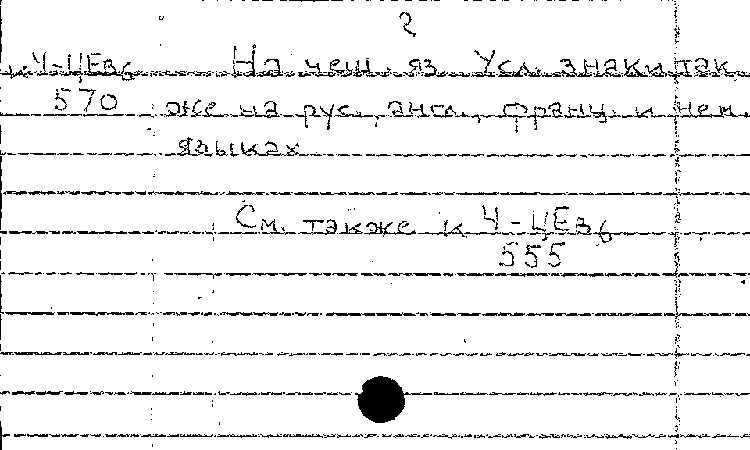 2
к Ч-ЦЕв6 На чеш. яз. Усл. знаки так
570 же на рус., англ., франц. и нем.
языках
См. также к Ч-ЦЕв6
555